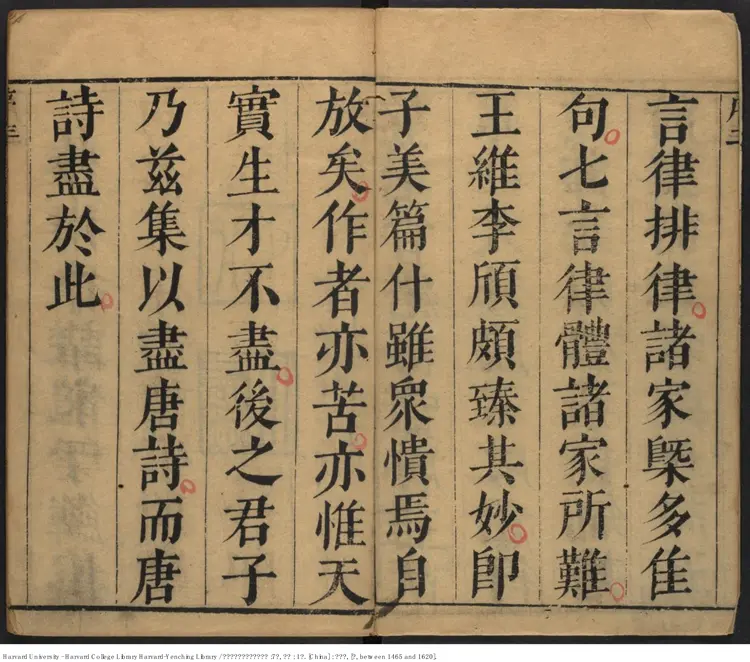 言律排律諸家槩多隹
句七言律體諸家所難
王維李頎頗臻其妙即
子美篇什雖衆憒焉自
放矣作者亦苦亦惟天
實生才不盡後之君子
乃兹集以盡唐詩而唐
詩盡於此
Harvard University - Harvard College Library Harvard-Yenching Library / ???????????? :??, ?? ; 1?. [China] : ???, ??, between 1465 and 1620].